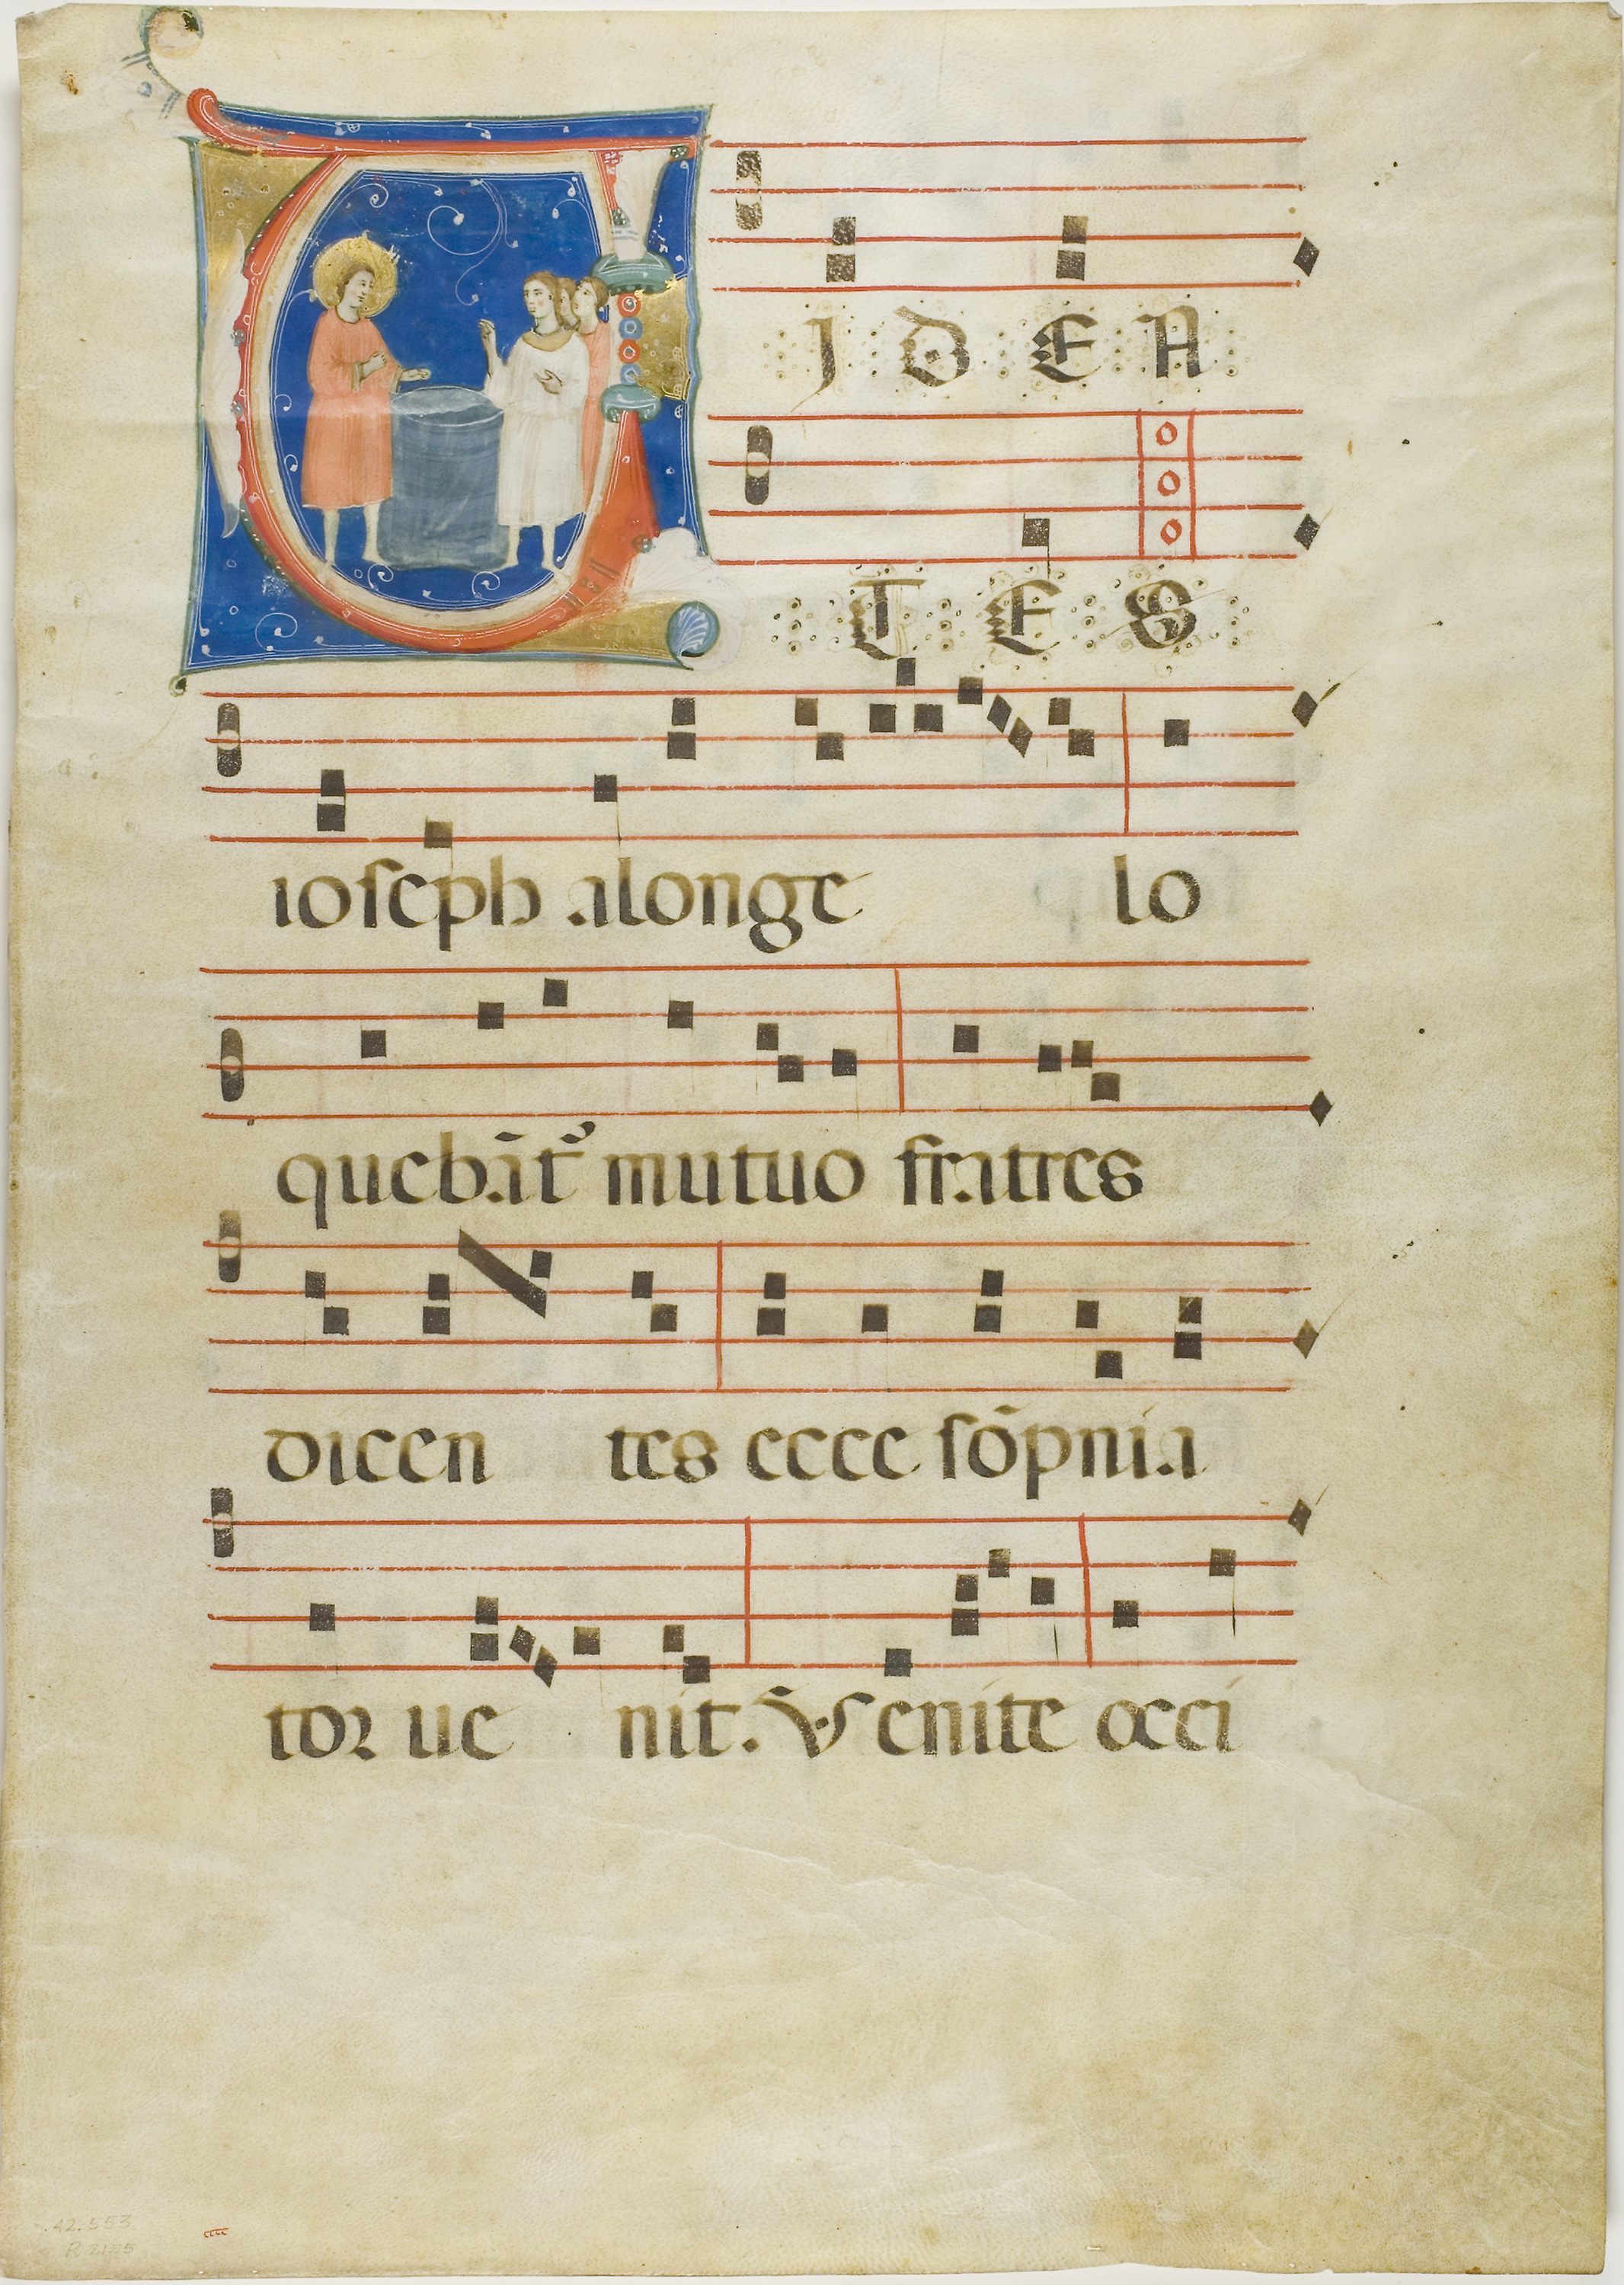 VIDEN
TES
ioseph alonge lo
quebāt᷑ mutuo fratres
dicen tes ecce sōpnia
tor ue nit. Venite occi
42.553